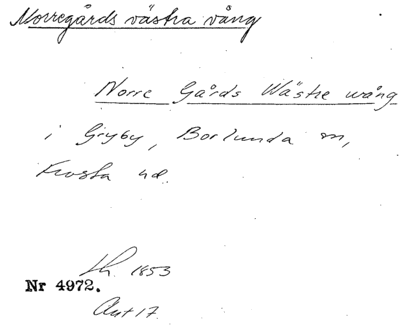 Norregårds västra vång
Norre Gårds Wästre wång
i Gryby, Borlunda sn,
Frosta hd.
lh. 1853
Nr 4972.
Akt 17.